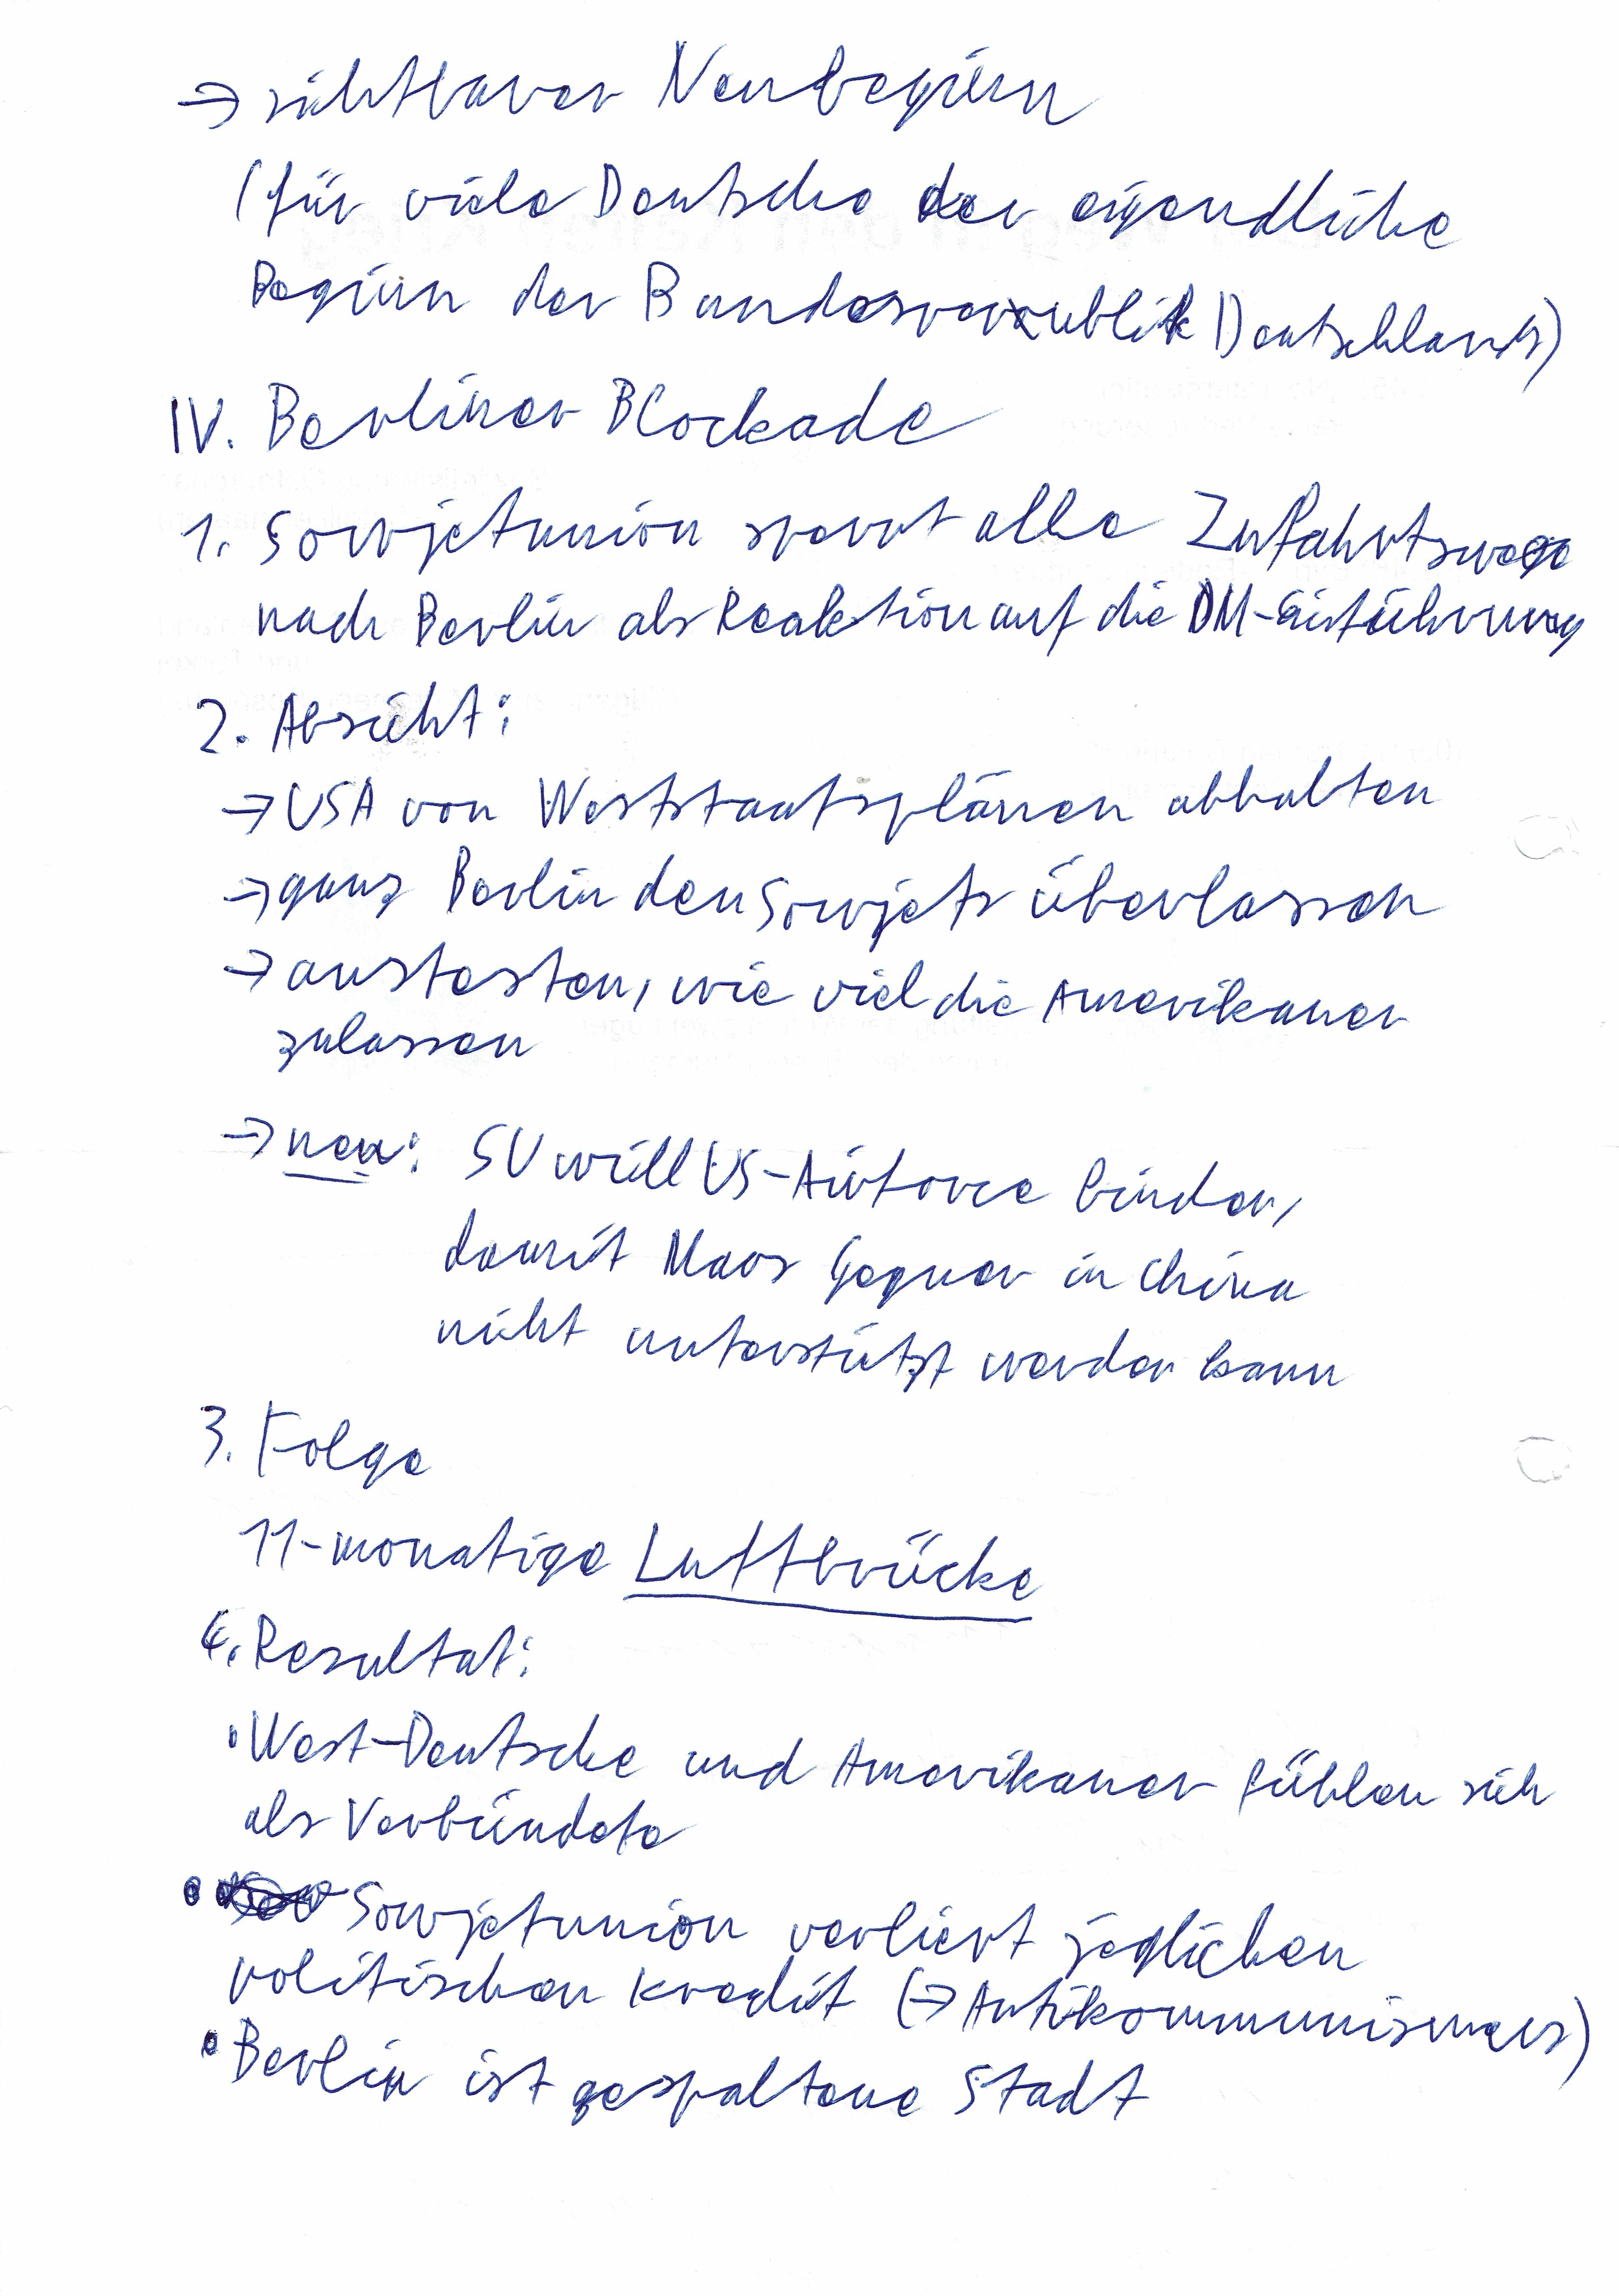 → sichtbarer Neubeginn
(für viele Deutsche der eigendliche
Beginn der Bundesrepublik Deutschlands)
IV. Berliner Blockade
1. Sowjetunion sperrt alle Zufahrtswege
nach Berlin als Reaktion auf die DM-Einführung
2. Absicht:
→ USA von Weststaatsplänen abhalten
→ ganz Berlin den Sowjets überlassen
→ austesten, wie viel die Amerikaner
zulassen
→ neu: SU will US-Airforce binden,
damit Maos Gegner in China
nicht unterstützt werden kann
3. Folge
11-monatige Luftbrücke
4. Resultat:
• West-Deutsche und Amerikaner fühlen sich
als Verbündete
• Sowjetunion verliert jeglichen
politischen Kredit (→ Antikommunismus)
• Berlin ist gespaltene Stadt